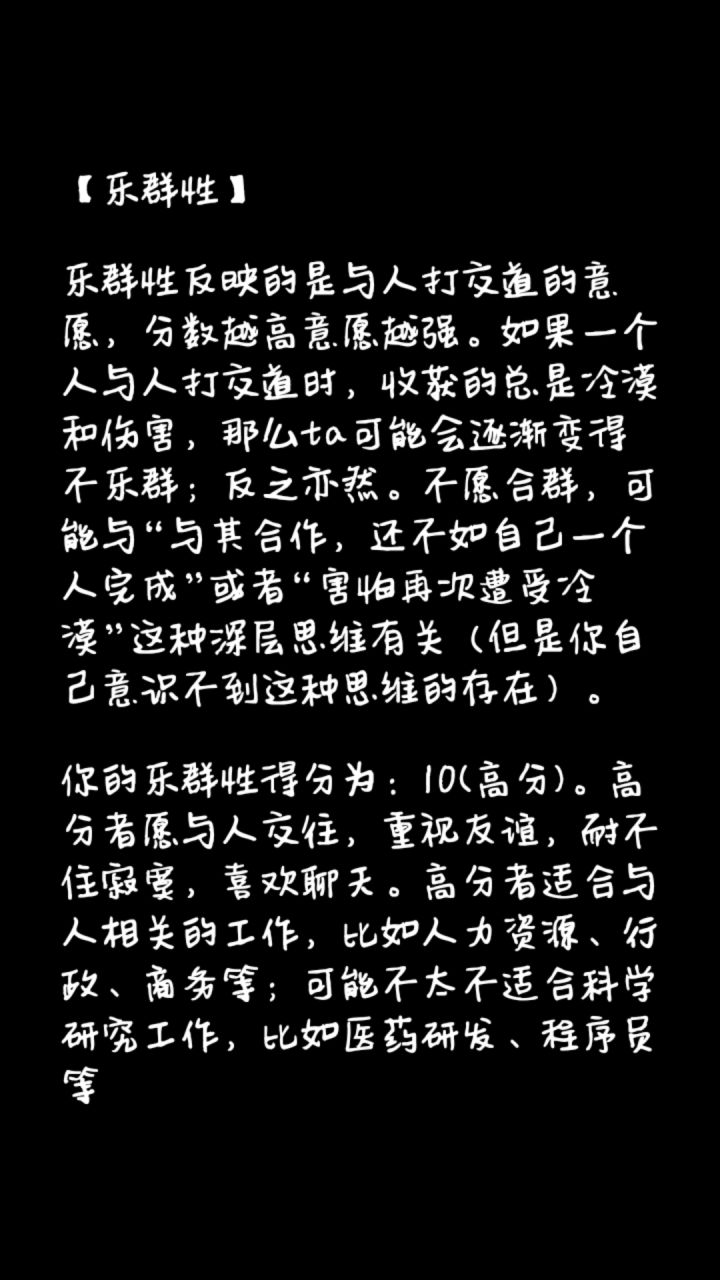 【乐群性】
乐群性反映的是与人打交道的意
愿，分数越高意愿越强。如果一个
人与人打交道时，收获的总是冷漠
和伤害，那么ta可能会逐渐变得
不乐群；反之亦然。不愿合群，可
能与“与其合作，还不如自己一个
人完成”或者“害怕再次遭受冷
漠”这种深层思维有关（但是你自
己意识不到这种思维的存在）。
你的乐群性得分为：10(高分)。高
分者愿与人交往，重视友谊，耐不
住寂寞，喜欢聊天。高分者适合与
人相关的工作，比如人力资源、行
政、商务等；可能不太不适合科学
研究工作，比如医药研发、程序员
等